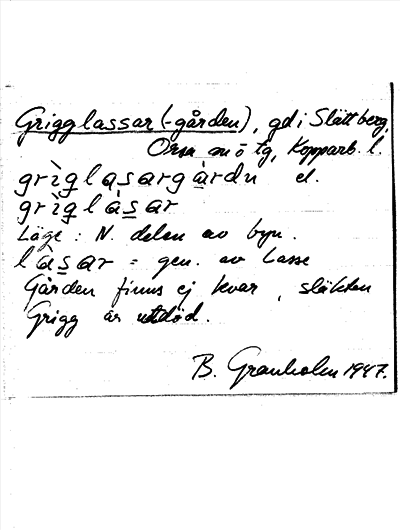 Grigglassar (-gården), gd i Slättberg,
Orsa sn ö tg, Kopparb. l.
grìg̱lạs̱argàrdu el.
grìg̱làs̱ar
Läge: N. delen av byn.
làs̱ar = gen. av Lasse
Gården finns ej kvar, släkten
Grigg är utdöd.
B. Granholm 1947.